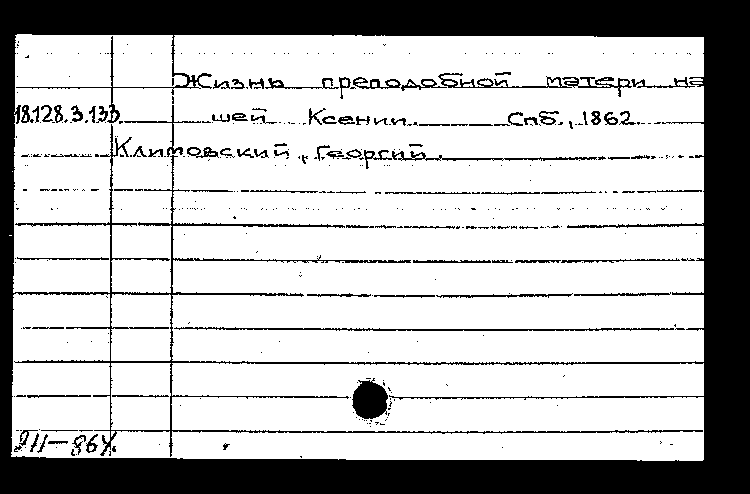 Жизнь преподобной матери на
18.128.3.133 шей Ксении. Спб., 1862.
Климовский, Георгий.